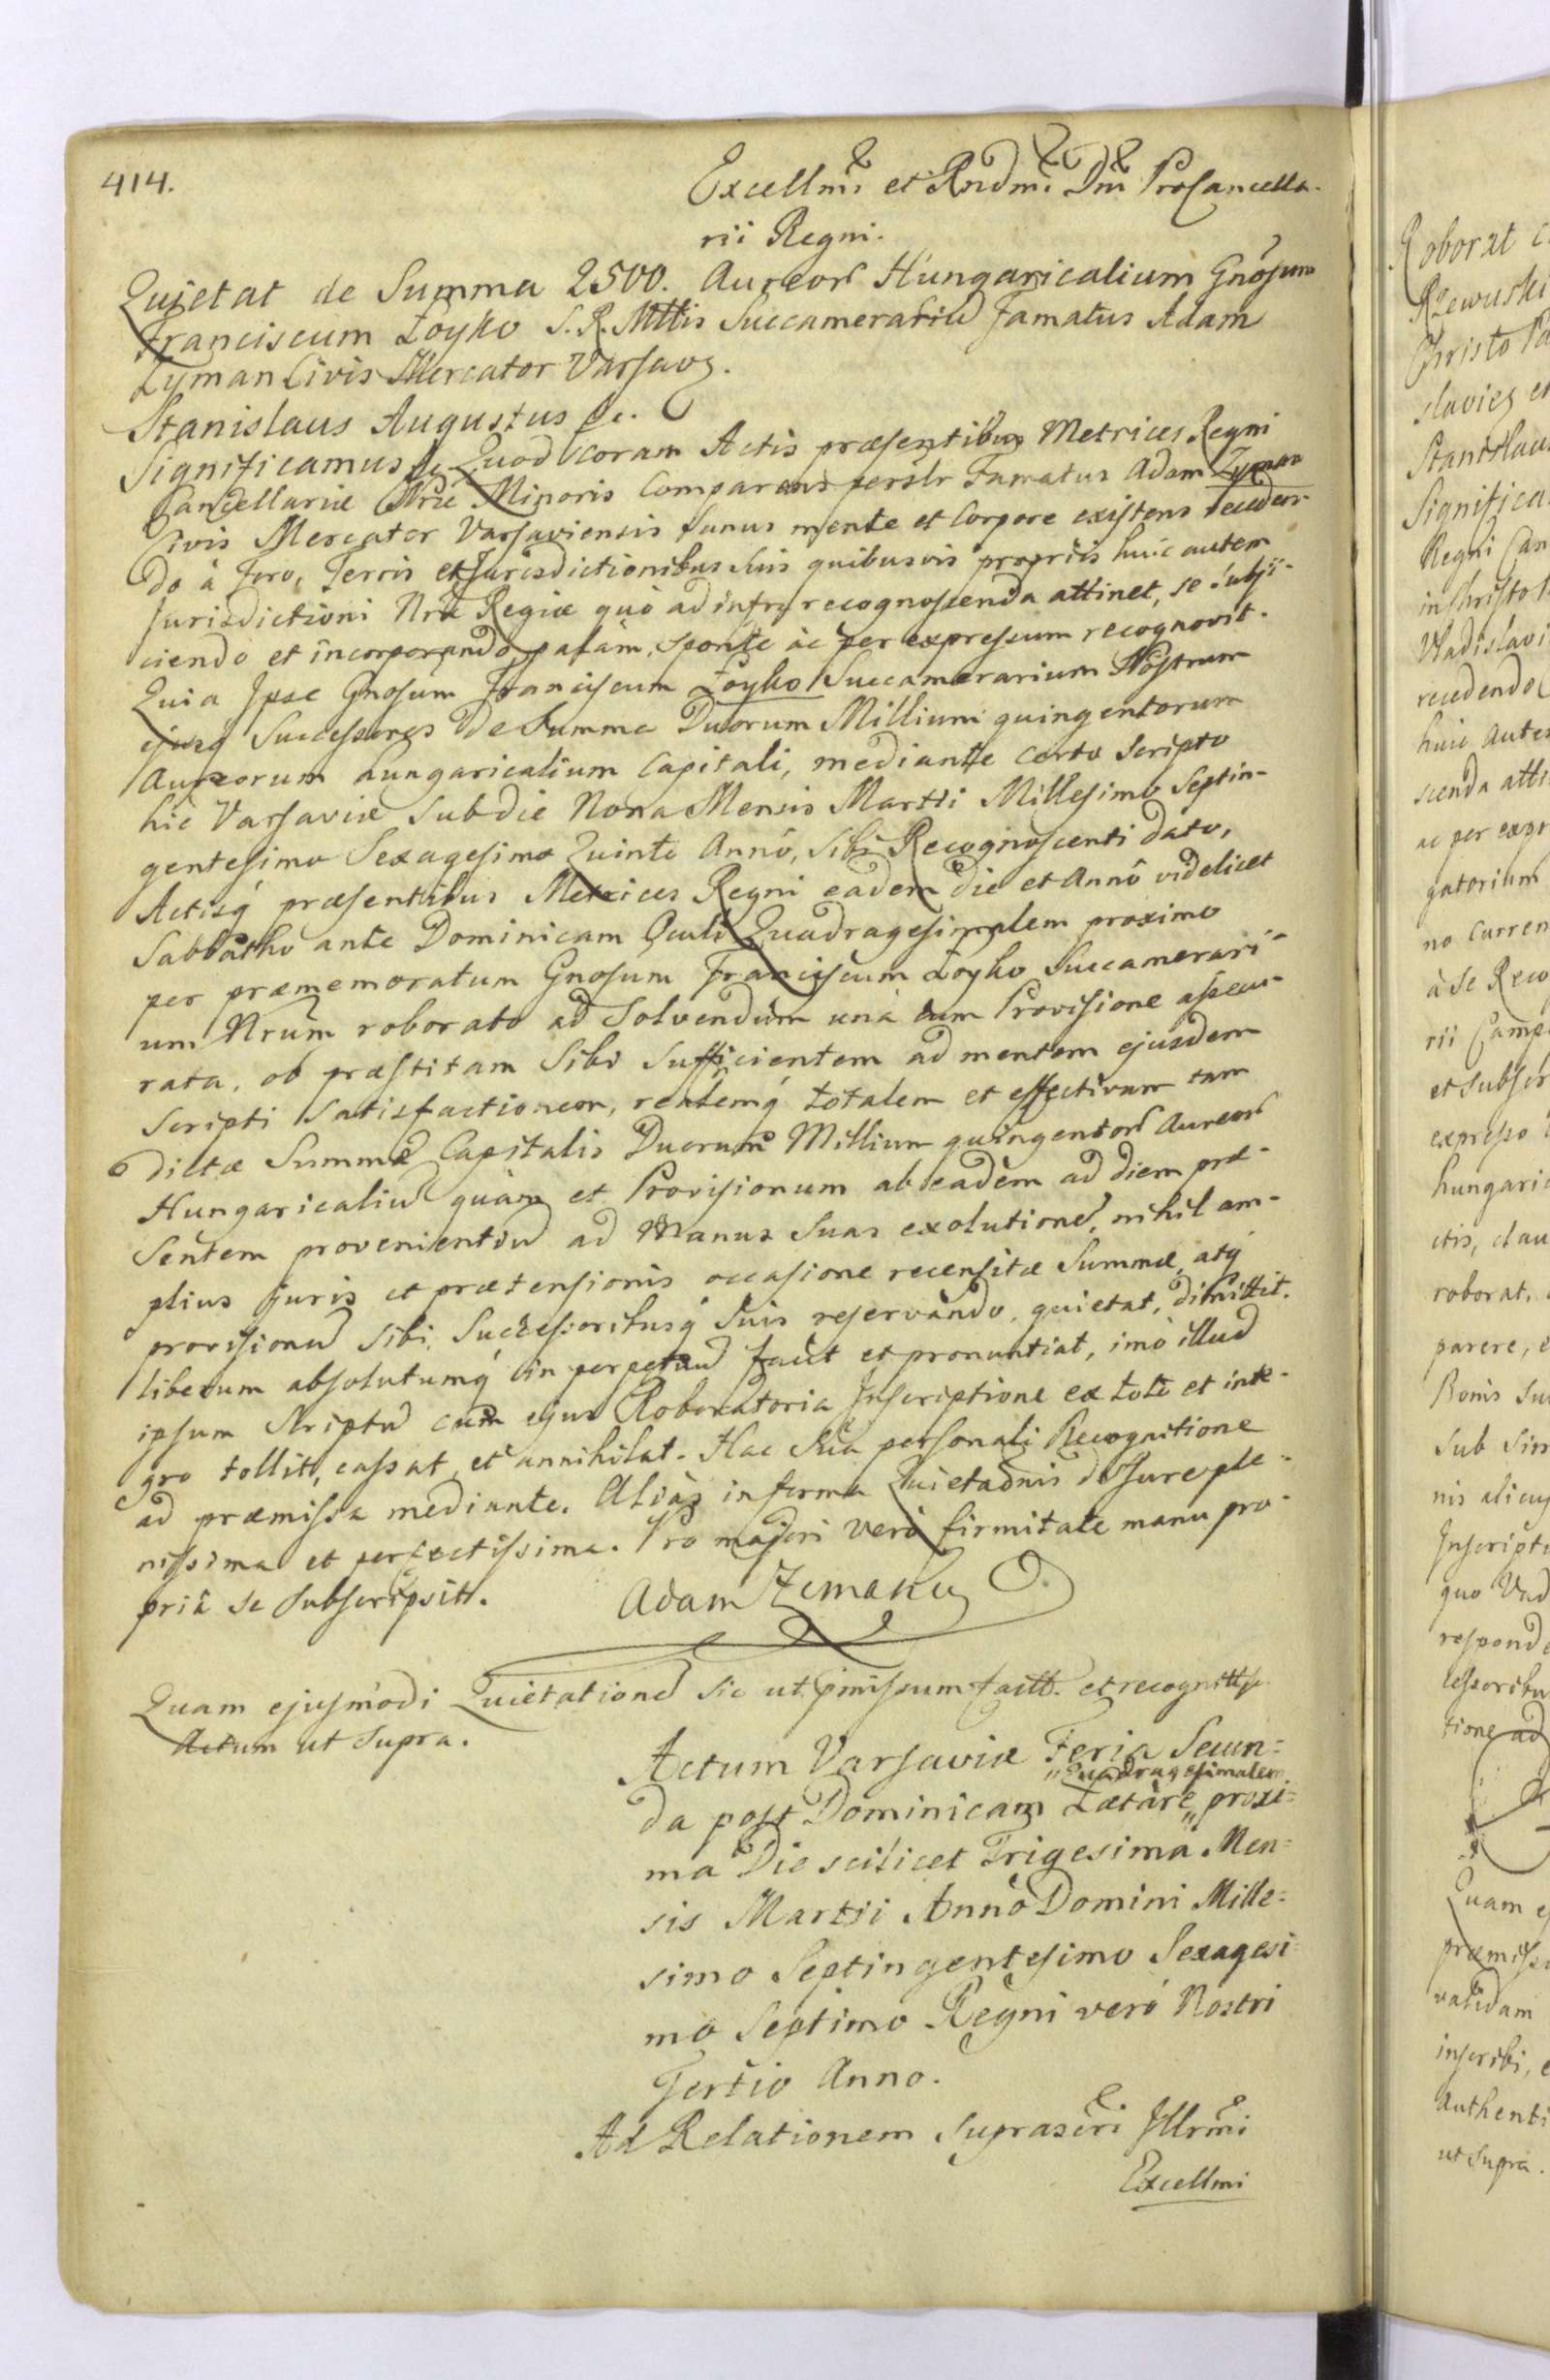 414.
Excellmi et Rndmi Dni ProCancella-
rii Regni.
Quietat de Summa 2500. Aureor Hungaricalium Gnosum
Franciscum Łoyko S. R. Mttis Succamerariu Famatus Adam
Zyman Civis Mercator Varsav.
Stanislaus Augustus &c.
Significamus &c Quod coram Actis præsentibus Metrices Regni
Cancellariæ Nræ Minoris Comparens persslr Famatus Adam Zyman
Civis Mercator Varsaviensis sanus mente et Corpore existens receden-
do à Foro, Terris et Jurisdictionibus suis quibusvis propriis huic autem
Jurisdictioni Nræ Regiæ quò ad infra recognoscenda attinet, se subji-
ciendo et incorporando palàm, sponte àc per expressum recognovit.
Quia Ipse Gnosum Franciscum Łoyko Succamerarium Nostrum
ejusq Successores de Summa Duorum Millium quingentorum
Aureorum hungaricalium Capitali, mediante certo Scripto
hic Varsaviæ Sub die Nona Mensis Martii Millesimo Septin-
gentesimo Sexagesimo Quinto Annô, sibi Recognoscenti dato,
Actisq præsentibus Metrices Regni eadem die et Annô videlicet
Sabbatho ante Dominicam Oculi Quadragesimalem proximo
per præmemoratum Gnosum Franciscum Łoyko Succamerari-
um Nrum roborato ad Solvendum unà cum Provisione assecu-
rata, ob præstitam Sibi Sufficientem ad mentem ejusdem
Scripti Satisfactionem, realemq totalem et effectivam tam
dictæ Summæ Capitalis Duorum Millium quingentor Aureor
Hungaricaliu quàm et Provisionum ab eadèm ad diem præ-
sentem provenientiu ad Manus Suas exolutione, nihil am-
plius juris et prætensionis occasione recensitæ Summæ, atq
provisionu Sibi Successoribusq Suis reservando, quietat, dimittit.
liberum absolutumq in perpetuu facit et pronuntiat, imò illud
ipsum Scriptu cum ejus Roboratoria Inscriptione ex toto et inte-
gro tollit, cassat, et annihilat. Hac Sua personali Recognitione
ad præmissa mediante. Aliàs in forma Quietaonis de Jure ple-
nissima et perfectissima. Pro majori verò firmitate manu pro-
priâ se Subscripsit.
Adam Zeman
Quam ejusmodi Quietatione Sic ut pmissum factt. et recognitt
Actum ut Supra.
Actum Varsaviæ Feria Secun=
"Quadragesimalem
da post Dominicam Lætare" proxi=
ma Die scilicet Trigesima Men=
sis Martii Anno Domini Mille=
simo Septingentesimo Sexagesi=
mo Septimo Regni verò Nostri
Tertio Anno.
Ad Relationem Suprascri Illrmi
Excellmi
Roborat
Rzewuski
Christo
slavie et
Stanislau
Significa
Regni Can
in Christo
Vladislavi
recedendo
huic Aute
scenda atti
ac per expr
gatorium
no Curren
à se Reco
rii Camp
et subscr
expresso
hungari
ctis, clau
roborat,
parere, e
Bonis su
sub sim
nis alicuj
Inscripti
quo Vad
responde
cessoribu
tione ad
Quam ej
præmiss
validam
inscribi, e
Authenti
ut Supra.